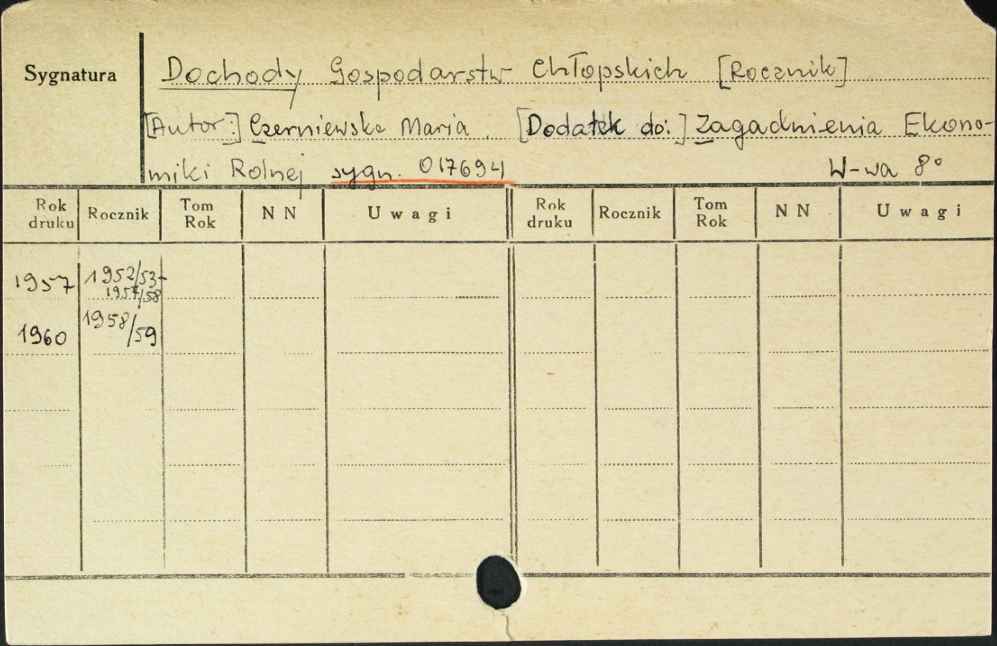 Sygnatura
Dochody Gospodarstw Chłopskich [Rocznik]
[Autor:] Czerniewska Maria. [Dodatek do:] Zagadnienia Ekono-
miki Rolnej sygn. 017694 W-wa 8°
Rok druku Rocznik Tom Rok N N Uwagi Rok druku Rocznik Tom Rok N N Uwagi
1957 1952/53-
1957/58
1960 1958/59